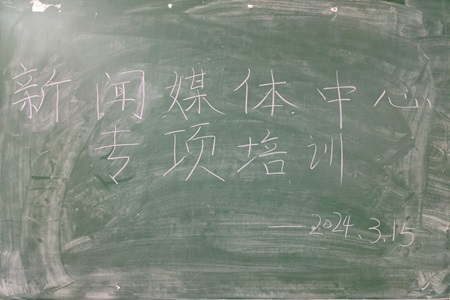 新闻媒体中心
专项培训
——2024.3.15